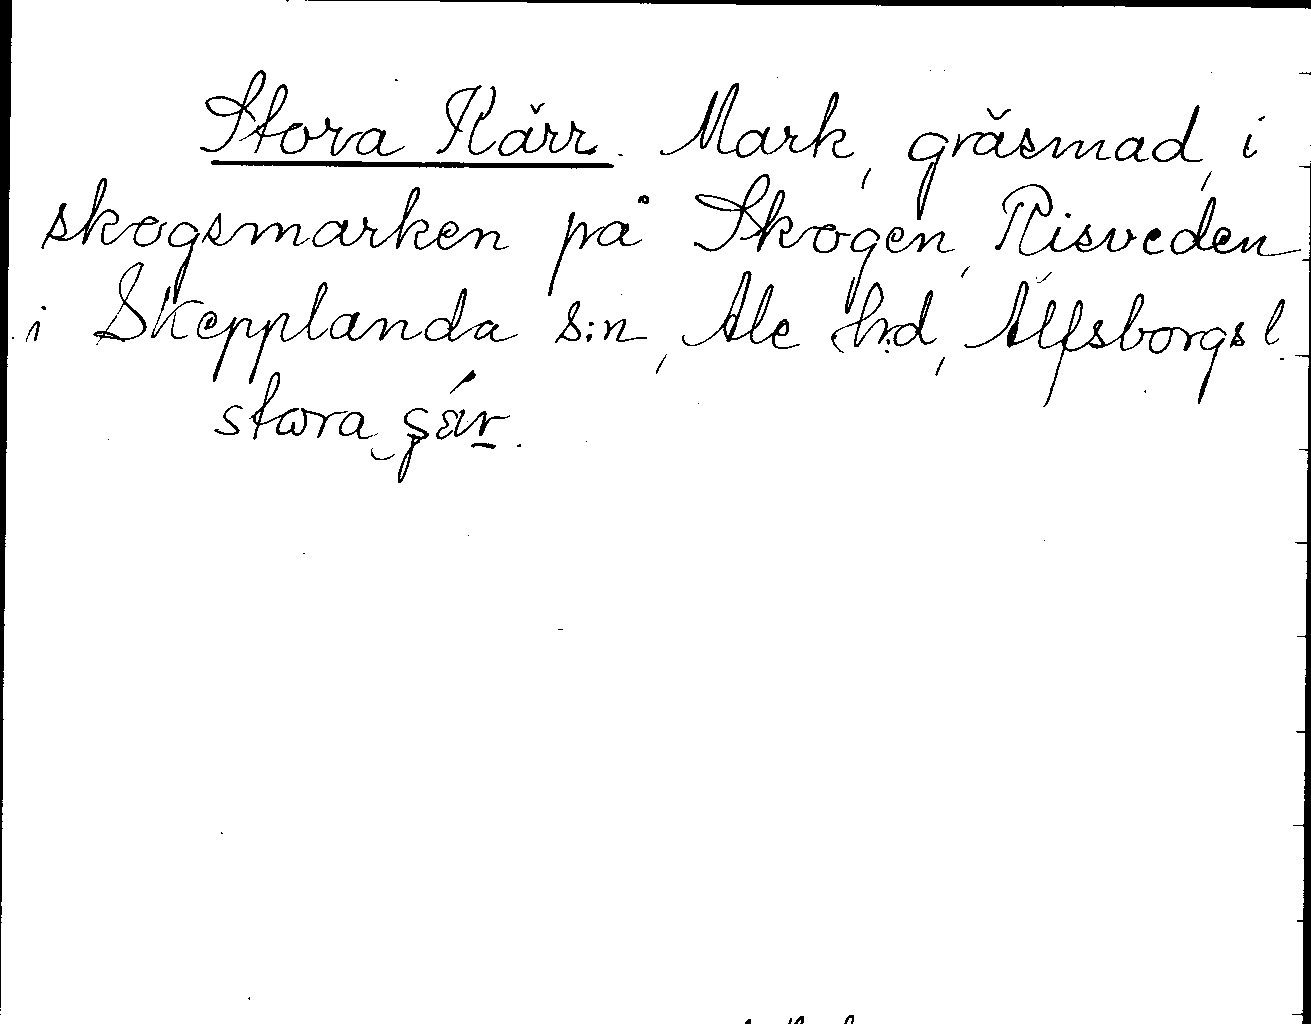 Stora Kärr. Mark, gräsmad, i
skogsmarken på Skogen, Risveden
i Skepplanda s:n, Ale h:d, Älfsborgs l.
stora